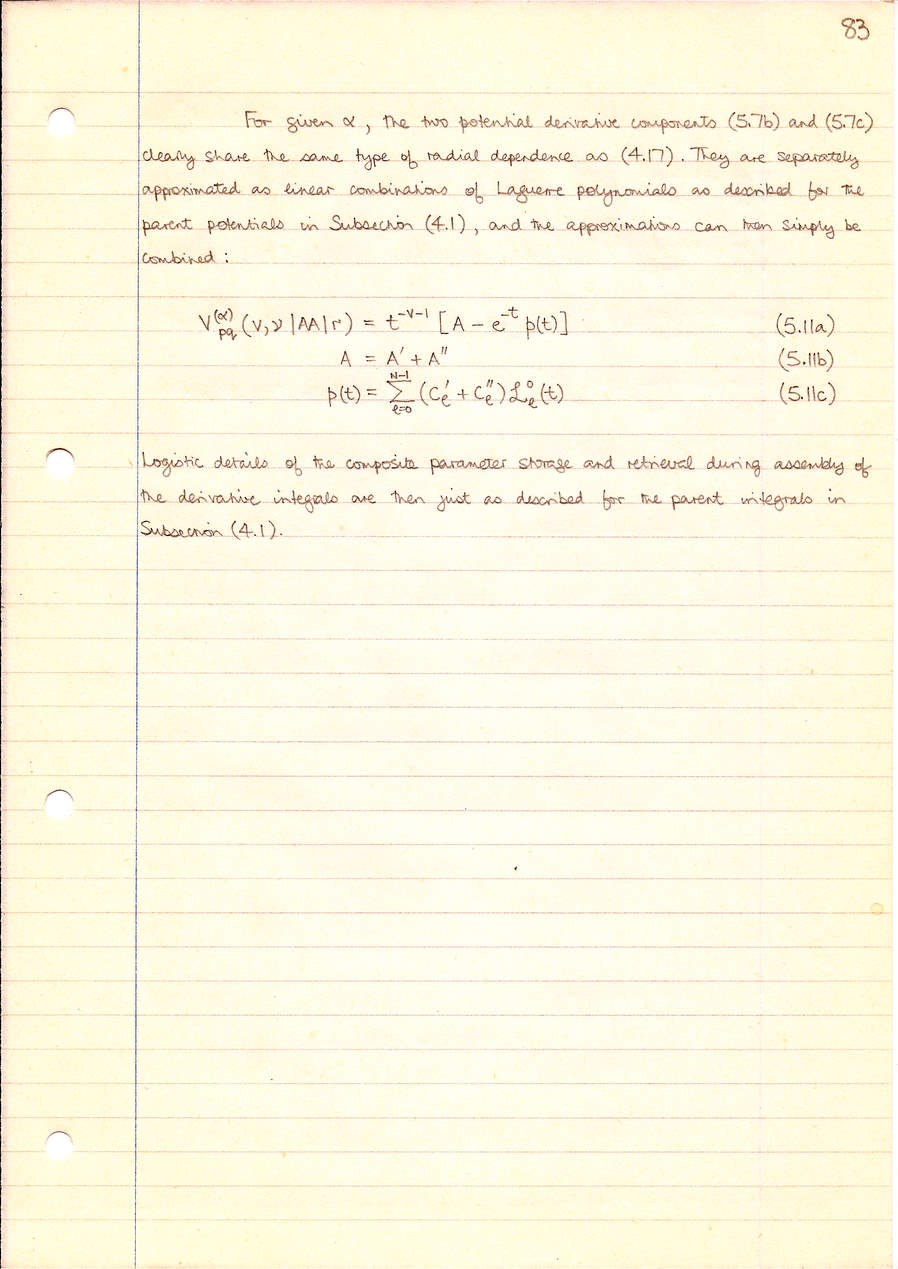 83
For given α, the two potential derivative components (5.7b) and (5.7c)
clearly share the same type of radial dependence as (4.17). They are separately
approximated as linear combinations of Laguerre polynomials as described for the
parent potentials in Subsection (4.1), and the approximations can then simply be
combined :
V_pq^(α) (V,ν |AA| r) = t^{-V-1} [A - e^{-t} p(t)] (5.11a)
A = A' + A'' (5.11b)
p(t) = Σ_{ℓ=0}^{N-1} (C_ℓ' + C_ℓ'') ℒ_ℓ^0 (t) (5.11c)
Logistic details of the composite parameter storage and retrieval during assembly of
the derivative integrals are then just as described for the parent integrals in
Subsection (4.1).